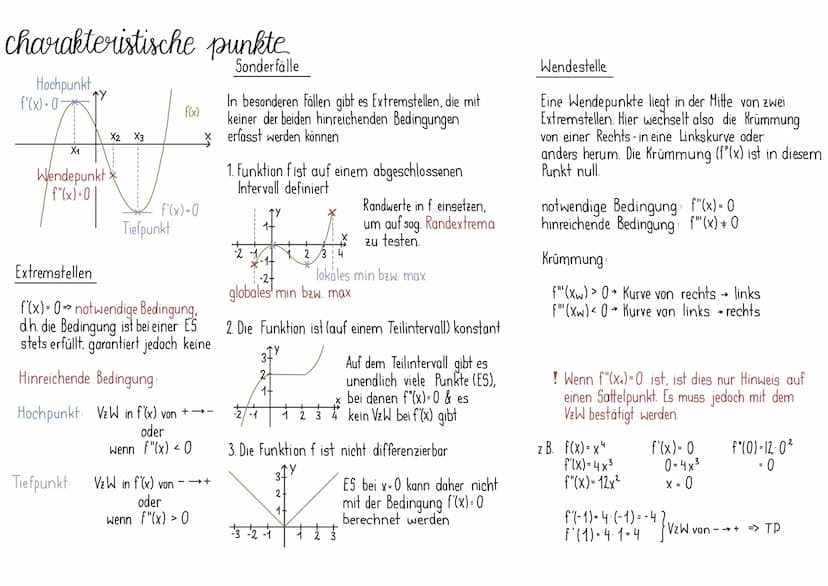 charakteristische punkte
Hochpunkt
f'(x)=0
y
f(x)
x
x₁
x₂
x₃
Wendepunkt
f''(x)=0
f'(x)=0
Tiefpunkt
Extremstellen
f'(x)=0 ⇒ notwendige Bedingung,
d.h. die Bedingung ist bei einer ES
stets erfüllt, garantiert jedoch keine
Hinreichende Bedingung:
Hochpunkt: VzW in f'(x) von + → -
oder
wenn f''(x) < 0
Tiefpunkt: VzW in f'(x) von - → +
oder
wenn f''(x) > 0
Sonderfälle
In besonderen Fällen gibt es Extremstellen, die mit
keiner der beiden hinreichenden Bedingungen
erfasst werden können
1. Funktion f ist auf einem abgeschlossenen
Intervall definiert
y
x
1
-2 -1 1 2 3 4
-1
-2
Randwerte in f einsetzen,
um auf sog. Randextrema
zu testen.
lokales min bzw. max
globales min bzw. max
2. Die Funktion ist (auf einem Teilintervall) konstant
y
3
2
1
x
-2 -1 1 2 3 4
Auf dem Teilintervall gibt es
unendlich viele Punkte (ES),
bei denen f''(x)=0 & es
kein VzW bei f'(x) gibt
3. Die Funktion f ist nicht differenzierbar
y
3
2
1
-3 -2 -1 1 2 3
ES bei x=0 kann daher nicht
mit der Bedingung f'(x)=0
berechnet werden
Wendestelle
Eine Wendepunkte liegt in der Mitte von zwei
Extremstellen. Hier wechselt also die Krümmung
von einer Rechts- in eine Linkskurve oder
anders herum. Die Krümmung (f''(x) ist in diesem
Punkt null.
notwendige Bedingung: f''(x) = 0
hinreichende Bedingung: f'''(x) ≠ 0
Krümmung:
f'''(xw) > 0 → Kurve von rechts → links
f'''(xw) < 0 → Kurve von links → rechts
! Wenn f''(x₁)=0 ist, ist dies nur Hinweis auf
einen Sattelpunkt. Es muss jedoch mit dem
VzW bestätigt werden.
z.B. f(x)=x⁴ f'(x)=0 f''(0)=12·0²
f'(x)=4x³ 0=4x³ =0
f''(x)=12x² x=0
f'(-1)=4·(-1)=-4
f'(1)=4·1=4 } VzW von - → + ⇒ TP